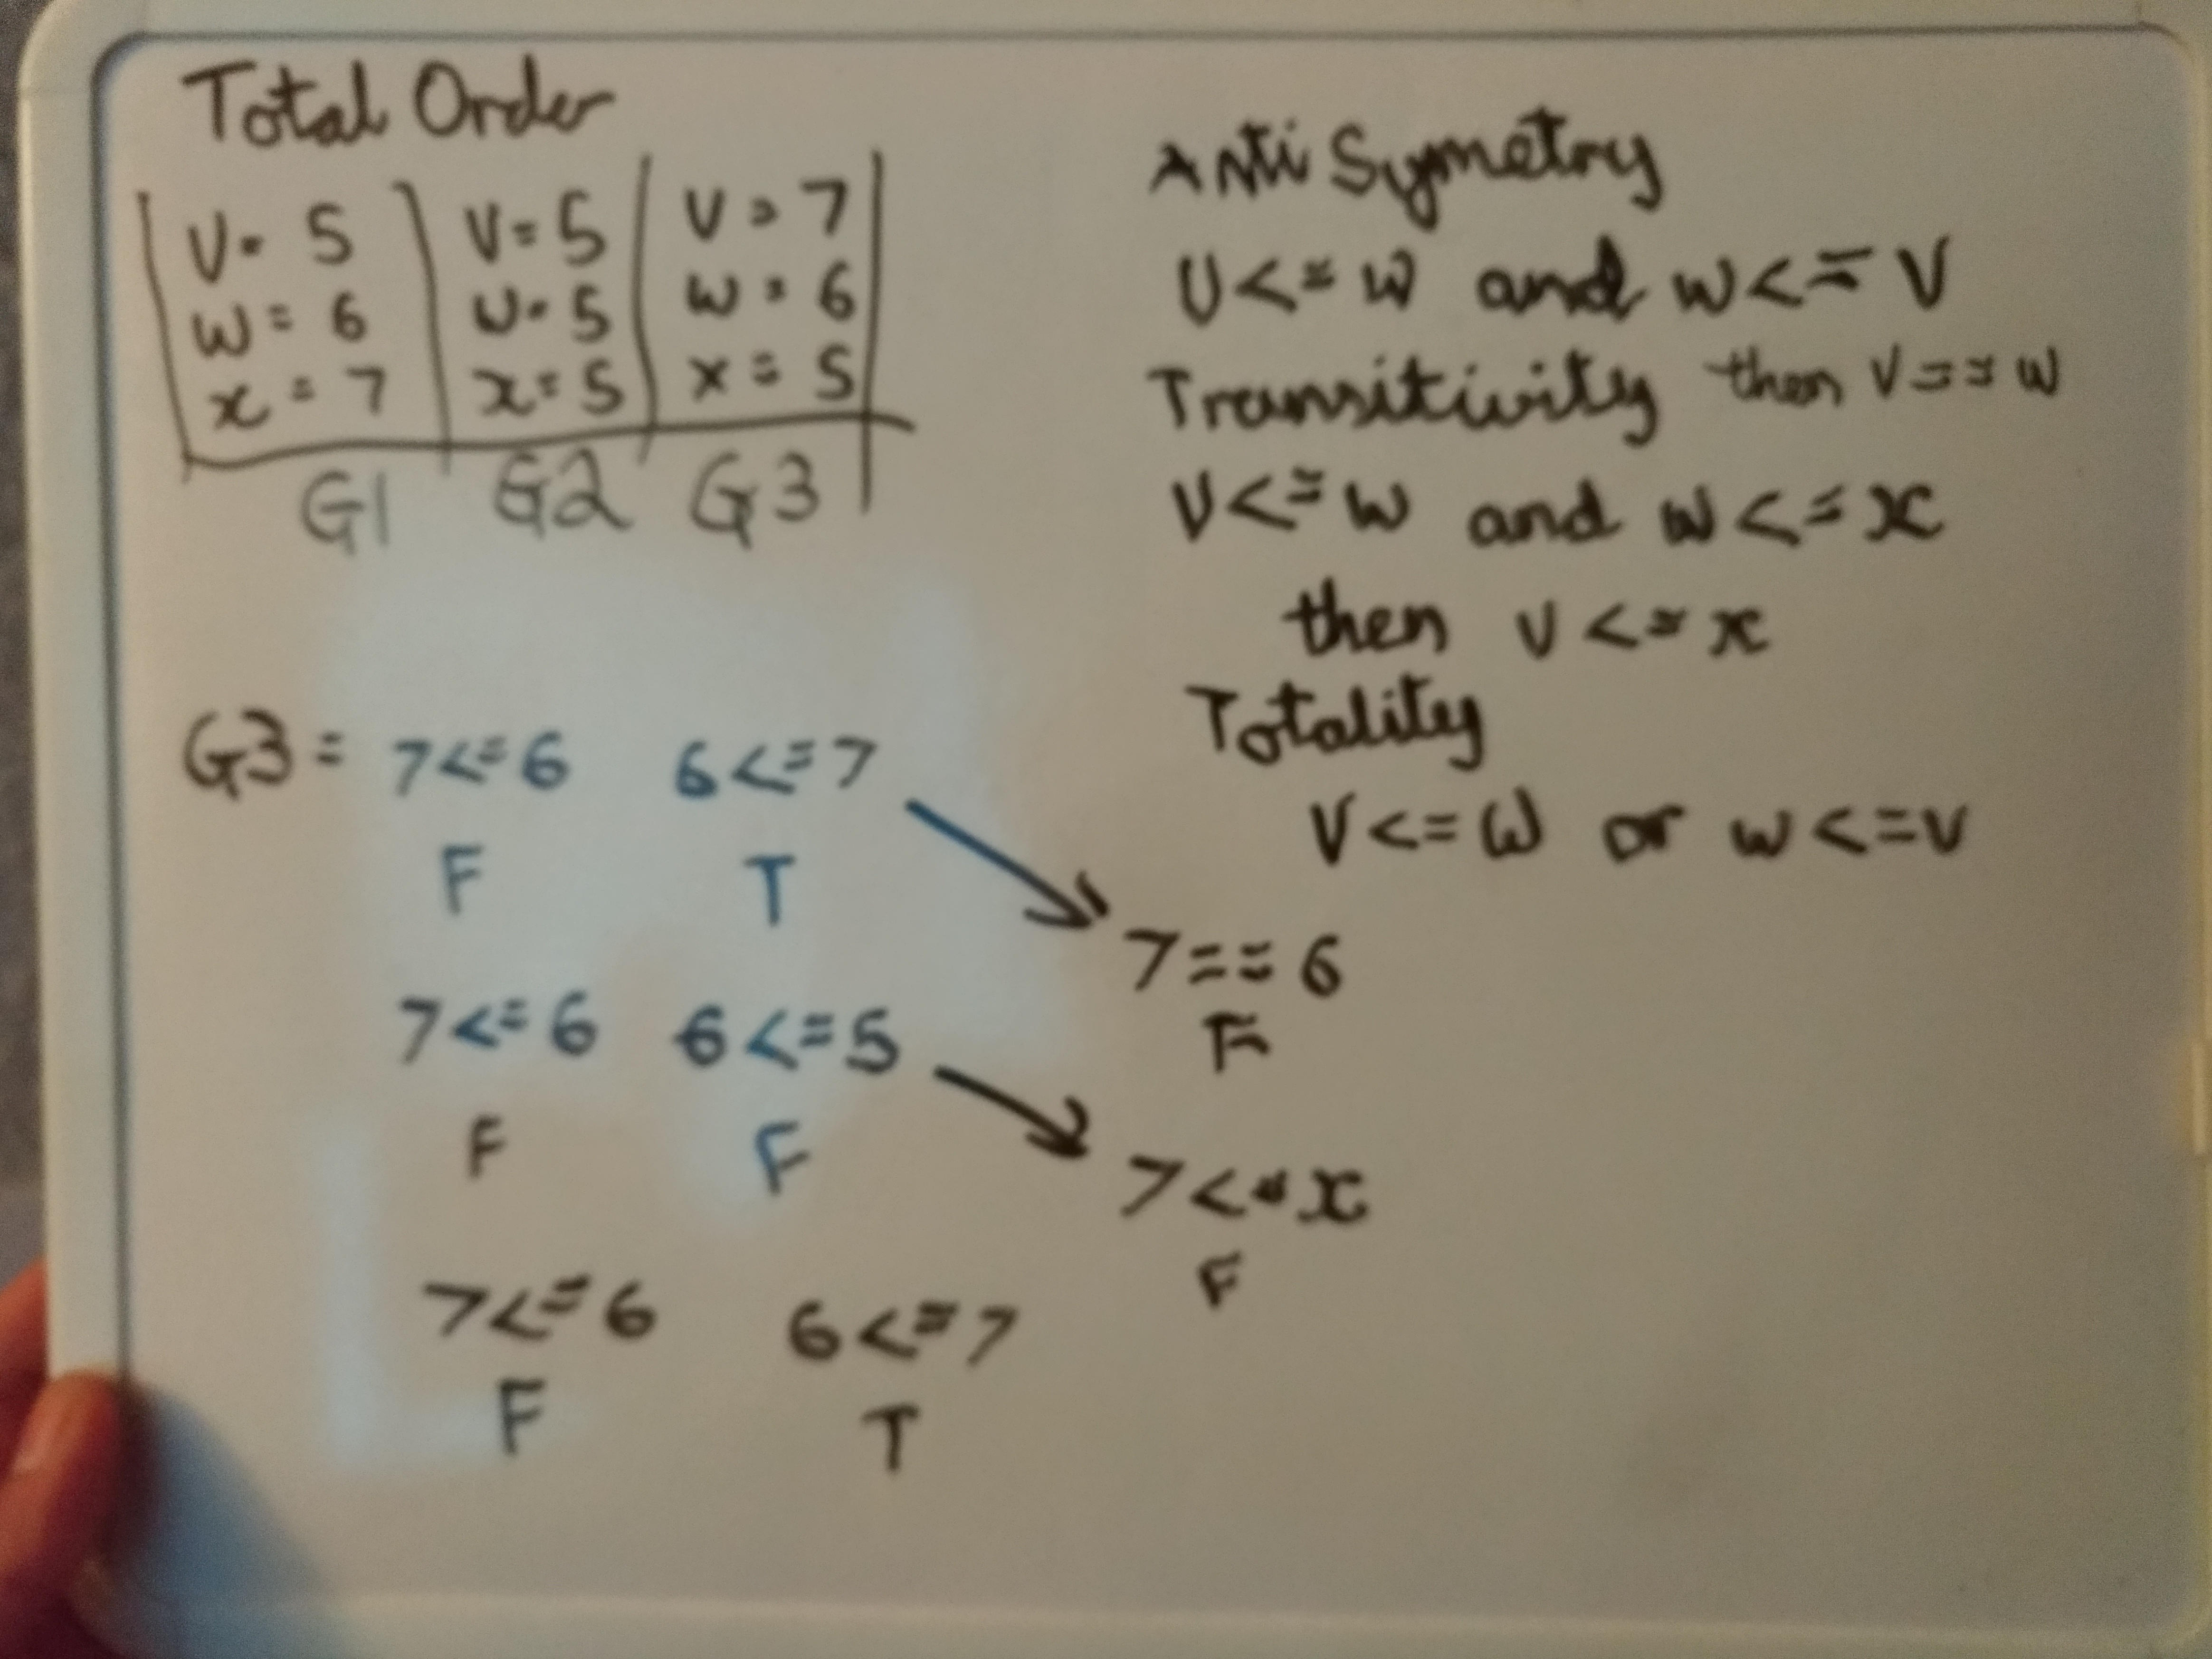 Total Order
V = 5
w = 6
x = 7
G1
V = 5
w = 5
x = 5
G2
V = 7
w = 6
x = 5
G3
Anti Symetry
V <= w and w <= V
then V == w
Transitivity
V <= w and w <= x
then v <= x
Totality
V <= w or w <= v
G3 = 7 <= 6 6 <= 7
F T
7 == 6
F
7 <= 6 6 <= 5
F F
7 <= x
F
7 <= 6 6 <= 7
F T